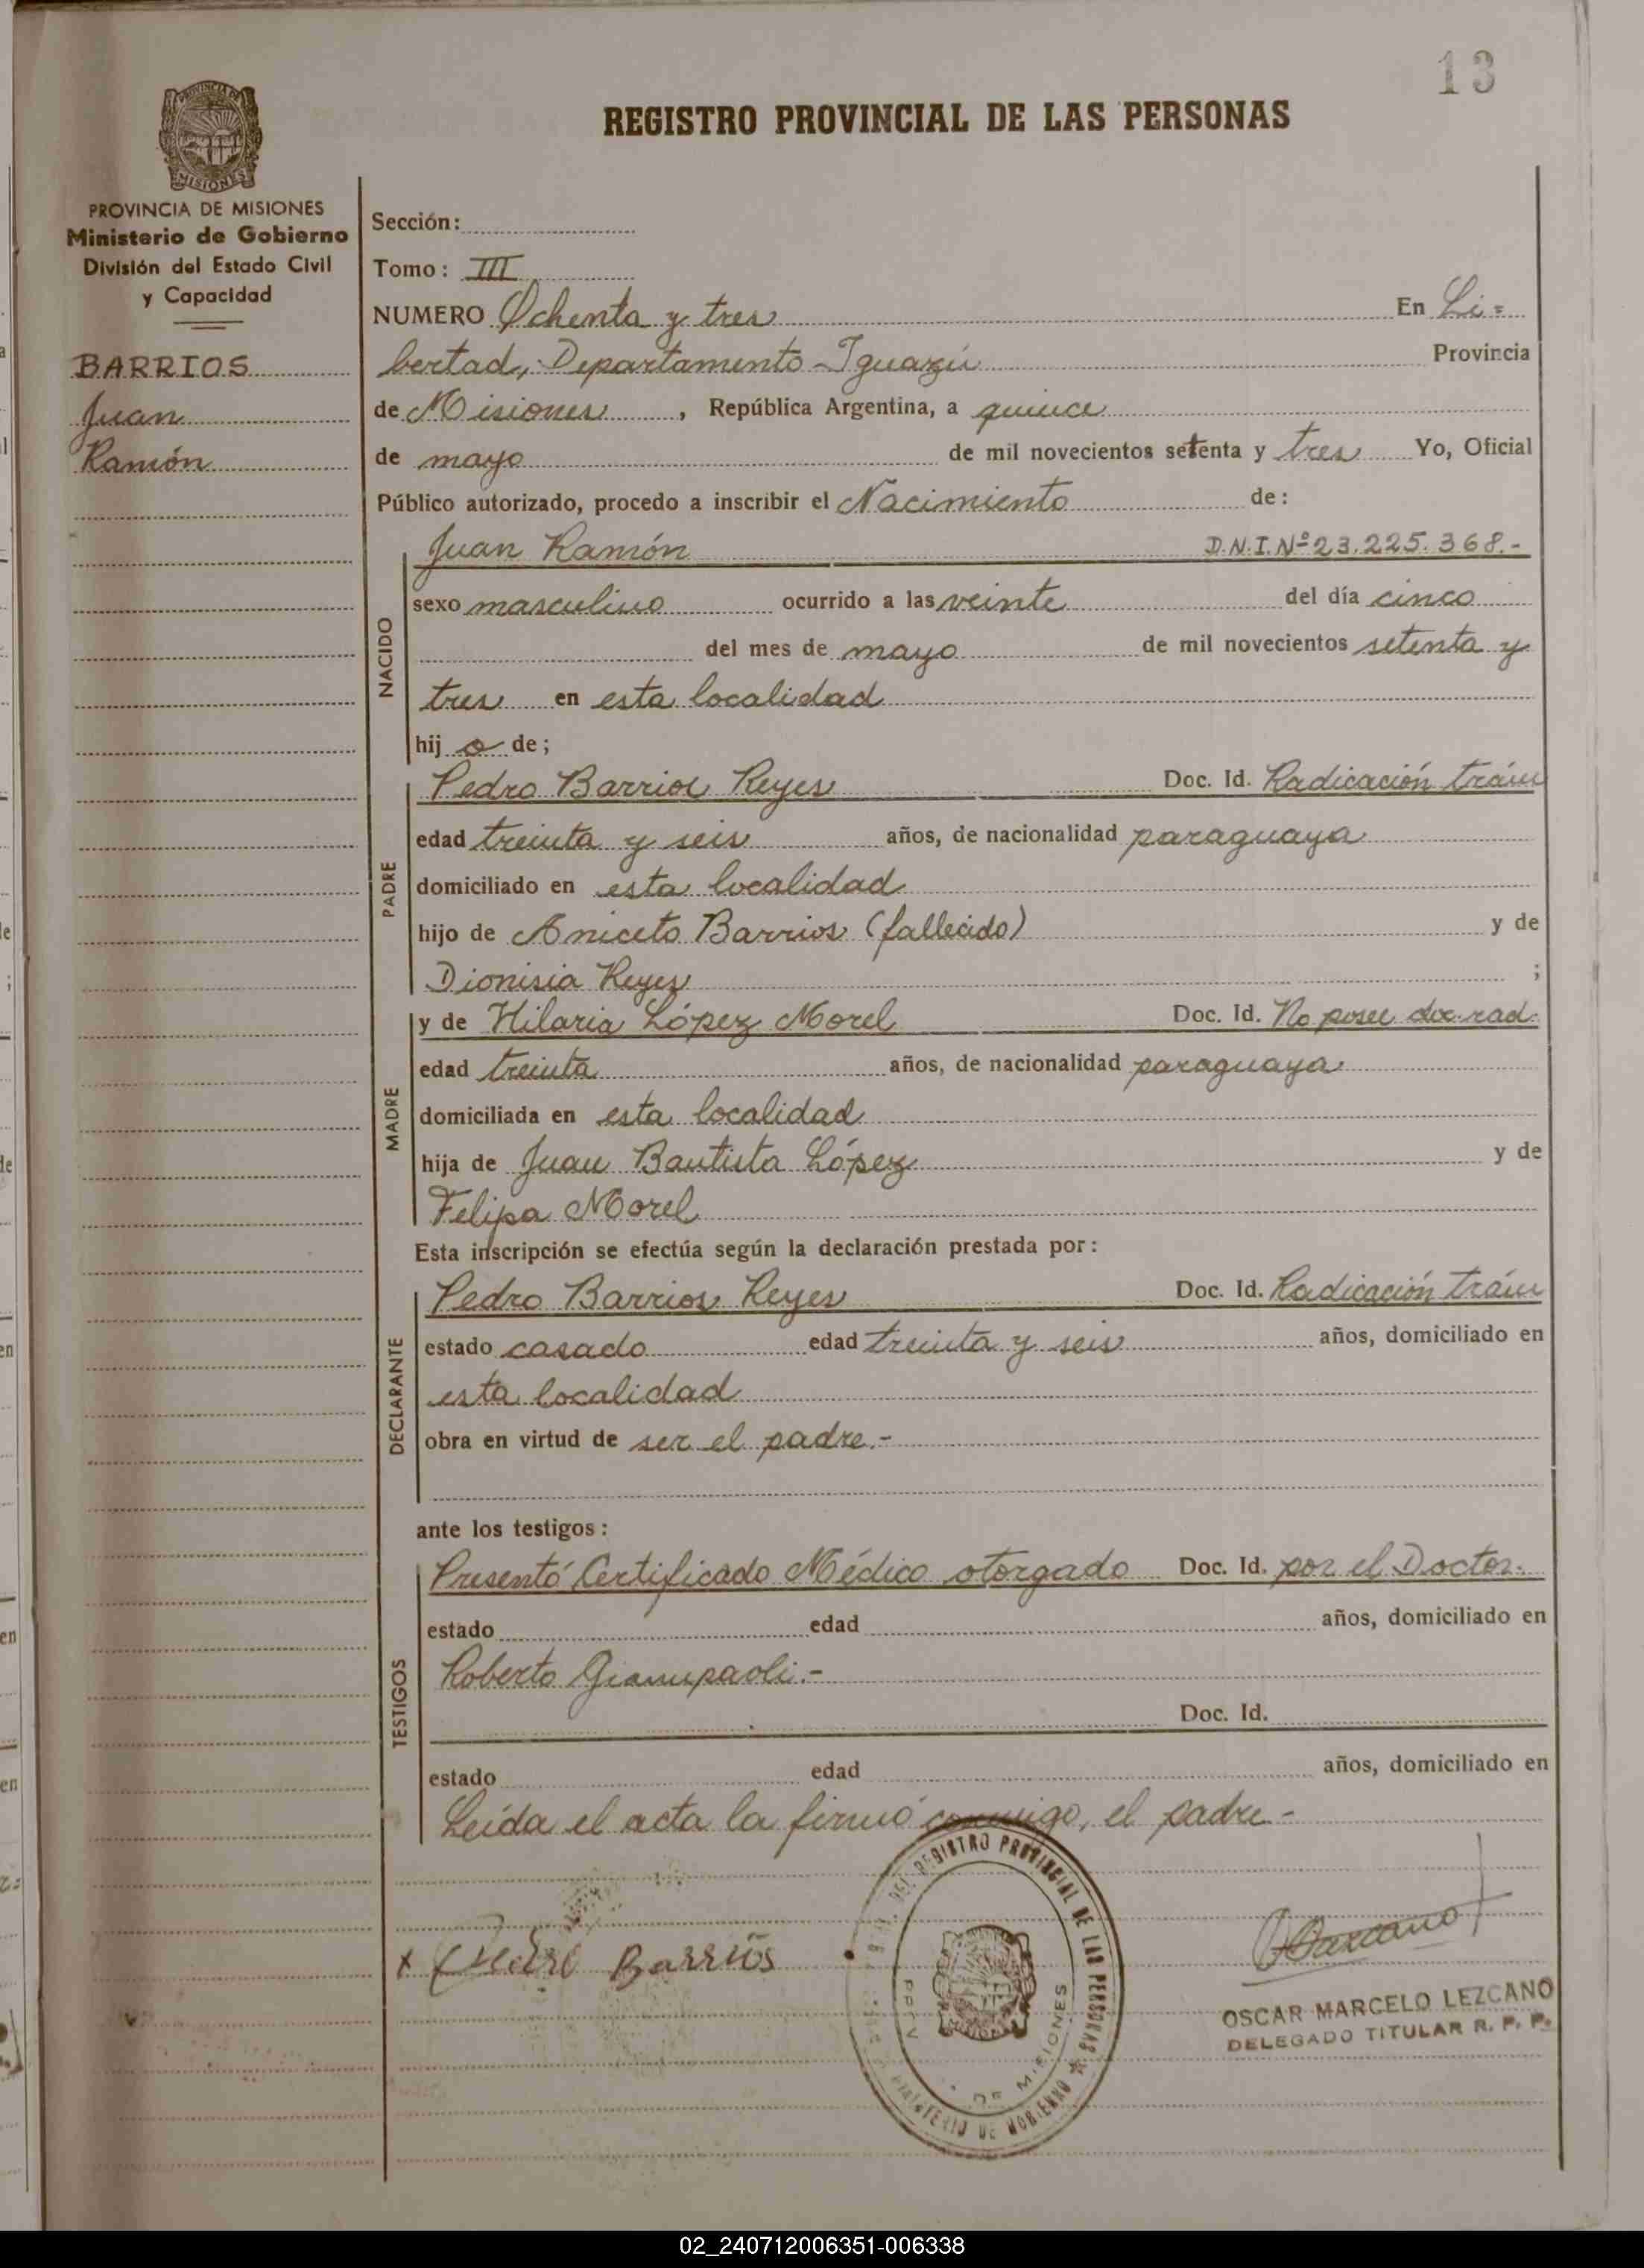 13
REGISTRO PROVINCIAL DE LAS PERSONAS
PROVINCIA DE MISIONES
MISIONES
PROVINCIA DE MISIONES
Ministerio de Gobierno
División del Estado Civil
y Capacidad
BARRIOS
Juan
Ramón
Sección:
Tomo: III
NUMERO Ochenta y tres En Li=
bertad, Departamento Iguazú Provincia
de Misiones, República Argentina, a quince
de mayo de mil novecientos setenta y tres Yo, Oficial
Público autorizado, procedo a inscribir el Nacimiento de:
NACIDO
Juan Ramón D.N.I.Nº23.225.368.-
sexo masculino ocurrido a las veinte del día cinco
del mes de mayo de mil novecientos setenta y
tres en esta localidad
hijo de;
PADRE
Pedro Barrios Reyes Doc. Id. Radicación trám
edad treinta y seis años, de nacionalidad paraguaya
domiciliado en esta localidad
hijo de Aniceto Barrios (fallecido) y de
Dionisia Reyes ;
MADRE
y de Hilaria López Morel Doc. Id. No posee doc. rad.
edad treinta años, de nacionalidad paraguaya
domiciliada en esta localidad
hija de Juan Bautista López y de
Felipa Morel
Esta inscripción se efectúa según la declaración prestada por:
DECLARANTE
Pedro Barrios Reyes Doc. Id. Radicación trám
estado casado edad treinta y seis años, domiciliado en
esta localidad
obra en virtud de ser el padre.-
ante los testigos:
TESTIGOS
Presentó Certificado Médico otorgado Doc. Id. por el Doctor.
estado edad años, domiciliado en
Roberto Giampaoli.-
Doc. Id.
estado edad años, domiciliado en
Leída el acta la firmó conmigo, el padre.-
x Pedro Barrios
DEL REGISTRO PROVINCIAL DE LAS PERSONAS
MINISTERIO DE GOBIERNO
DE MISIONES
OSCAR MARCELO LEZCANO
DELEGADO TITULAR R. P. P.
02_240712006351-006338